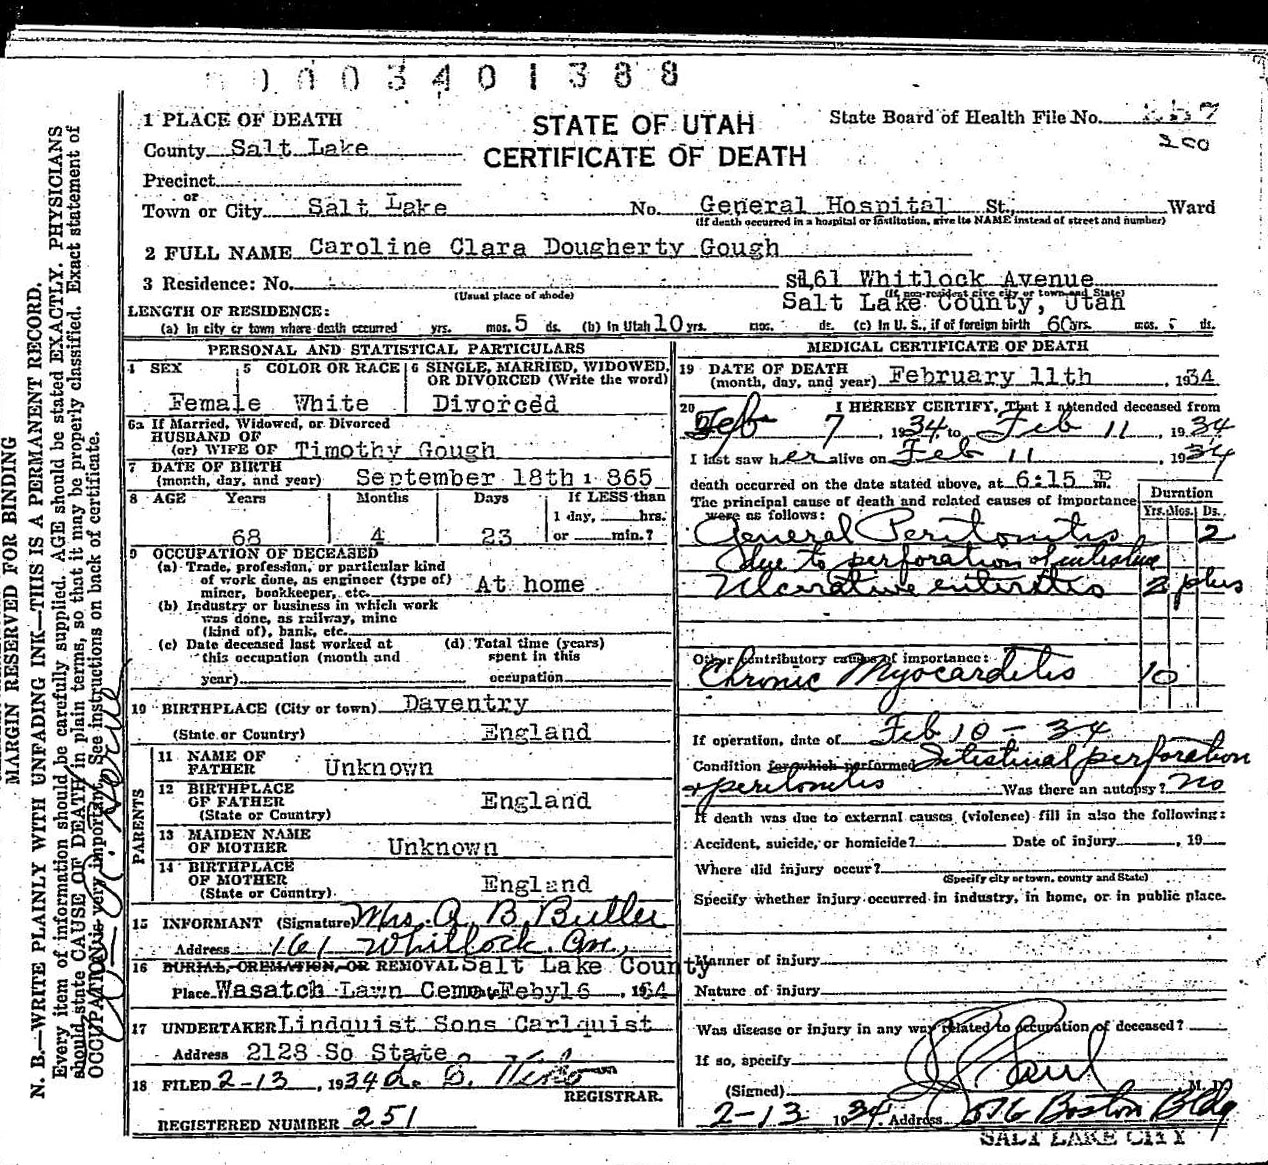 0003401388
1 PLACE OF DEATH
STATE OF UTAH
CERTIFICATE OF DEATH
State Board of Health File No.
200
County Salt Lake
Precinct
or
Town or City Salt Lake No. General Hospital St., Ward
(If death occurred in a hospital or institution, give its NAME instead of street and number)
2 FULL NAME Caroline Clara Dougherty Gough
3 Residence: No. 161 Whitlock Avenue
(Usual place of abode) (If non-resident give city or town and State)
Salt Lake County, Utah
LENGTH OF RESIDENCE:
(a) In city or town where death occurred yrs. mos. 5 ds. (b) In Utah 10 yrs. mos. ds. (c) In U. S., if of foreign birth 60 yrs. mos. ds.
PERSONAL AND STATISTICAL PARTICULARS
4 SEX
Female
5 COLOR OR RACE
White
6 SINGLE, MARRIED, WIDOWED, OR DIVORCED (Write the word)
Divorced
6a If Married, Widowed, or Divorced
HUSBAND OF
(or) WIFE OF Timothy Gough
7 DATE OF BIRTH
(month, day, and year) September 18th 1865
8 AGE Years Months Days If LESS than
1 day, hrs.
68 4 23 or min.?
9 OCCUPATION OF DECEASED
(a) Trade, profession, or particular kind
of work done, as engineer (type of)
miner, bookkeeper, etc. At home
(b) Industry or business in which work
was done, as railway, mine
(kind of), bank, etc.
(c) Date deceased last worked at
this occupation (month and
year)
(d) Total time (years)
spent in this
occupation
10 BIRTHPLACE (City or town) Daventry
(State or Country) England
PARENTS
11 NAME OF
FATHER Unknown
12 BIRTHPLACE
OF FATHER England
(State or Country)
13 MAIDEN NAME
OF MOTHER Unknown
14 BIRTHPLACE
OF MOTHER England
(State or Country)
15 INFORMANT (Signature) Mrs. A. B. Butler
Address 161 Whitlock Ave,
16 BURIAL, CREMATION, OR REMOVAL Salt Lake County
Place Wasatch Lawn Ceme Feby 16, 1934
17 UNDERTAKER Lindquist Sons Carlquist
Address 2128 So State
18 FILED 2-13, 1934
REGISTRAR.
REGISTERED NUMBER 251
MEDICAL CERTIFICATE OF DEATH
19 DATE OF DEATH
(month, day, and year) February 11th, 1934
20 I HEREBY CERTIFY, That I attended deceased from
Feb 7, 1934 to Feb 11 1934
I last saw her alive on Feb 11, 1934
death occurred on the date stated above, at 6:15 P m.
The principal cause of death and related causes of importance
were as follows:
Duration
Yrs. Mos. Ds.
General Peritonitis 2
due to perforation of intestine
Ulcerative enteritis 2 plus
Other contributory causes of importance:
Chronic Myocarditis 10
If operation, date of Feb 10 - 34
Condition for which performed Intestinal perforation
+ peritonitis Was there an autopsy? No
If death was due to external causes (violence) fill in also the following:
Accident, suicide, or homicide? Date of injury, 19
Where did injury occur?
(Specify city or town, county and State)
Specify whether injury occurred in industry, in home, or in public place.
Manner of injury
Nature of injury
Was disease or injury in any way related to occupation of deceased?
If so, specify
(Signed) M. D.
2-13 1934 Address 576 Boston Bldg
SALT LAKE CITY
MARGIN RESERVED FOR BINDING
N. B.—WRITE PLAINLY WITH UNFADING INK—THIS IS A PERMANENT RECORD.
Every item of information should be carefully supplied. AGE should be stated EXACTLY. PHYSICIANS
should state CAUSE OF DEATH in plain terms, so that it may be properly classified. Exact statement of
OCCUPATION is very important. See instructions on back of certificate.